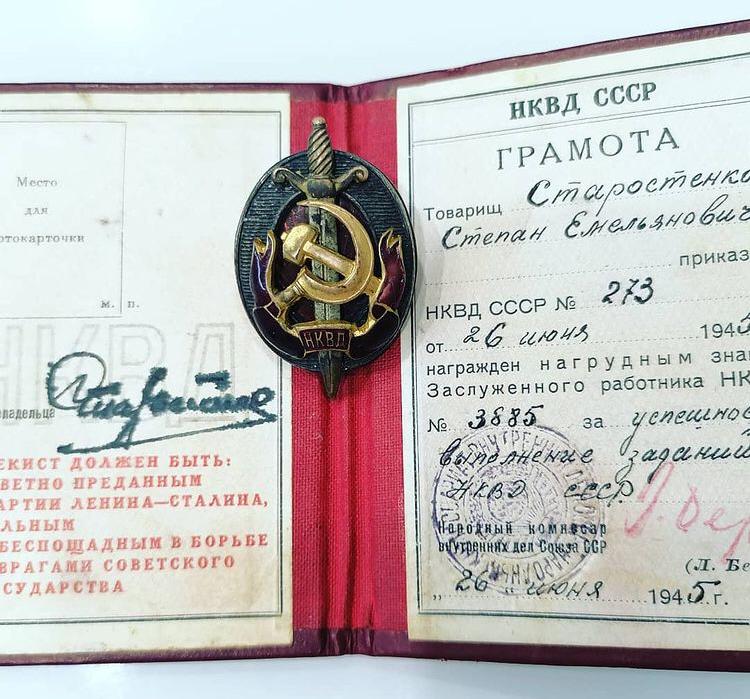 Место
для
фотокарточки
м. п.
НКВД
владельца
ЕКИСТ ДОЛЖЕН БЫТЬ:
ВЕТНО ПРЕДАННЫМ
АРТИИ ЛЕНИНА—СТАЛИНА,
ЛЬНЫМ
БЕСПОЩАДНЫМ В БОРЬБЕ
ВРАГАМИ СОВЕТСКОГО
СУДАРСТВА
НКВД
НКВД СССР
ГРАМОТА
Товарищ Старостенко
Степан Емельянович
приказ
НКВД СССР № 273
от 26 июня 194
награжден нагрудным зна
Заслуженного работника НК
№ 3885 за успешное
выполнение заданий
НКВД СССР.
Народный комиссар
внутренних дел Союза ССР
(Л. Бе
„ 26 „ июня 1945 г.